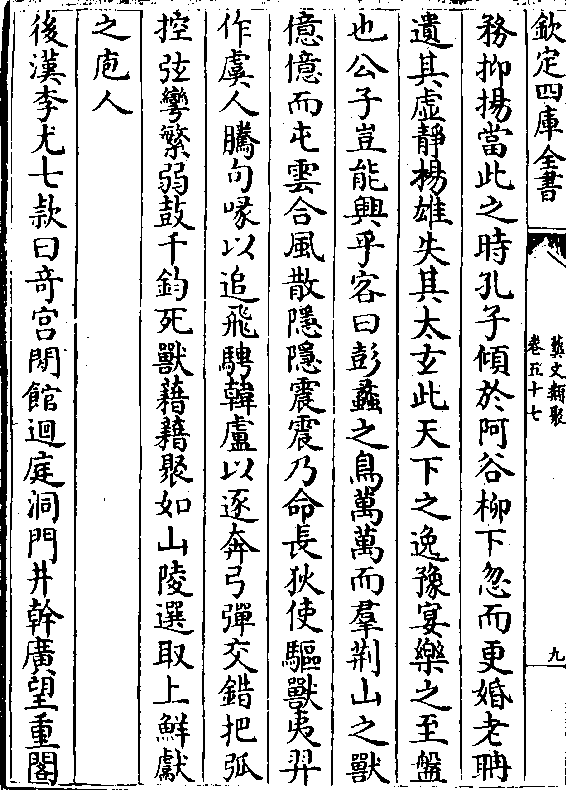 欽定四庫全書
藝文類聚
卷五十七
九
務抑揚當此之時孔子傾於阿谷柳下忽而更婚老聃
遺其虛靜揚雄失其太玄此天下之逸豫宴樂之至盤
也公子豈能興乎客曰彭蠡之鳥萬萬而羣荆山之獸
億億而屯雲合風散隱隱震震乃命長狄使驅獸夷羿
作虞人騰句喙以追飛騁韓盧以逐奔弓彈交錯把弧
控弦彎繁弱鼓千鈞死獸藉藉聚如山陵選取上鮮獻
之庖人
後漢李尤七款曰奇宮閑館迴庭洞門井幹廣望重閣